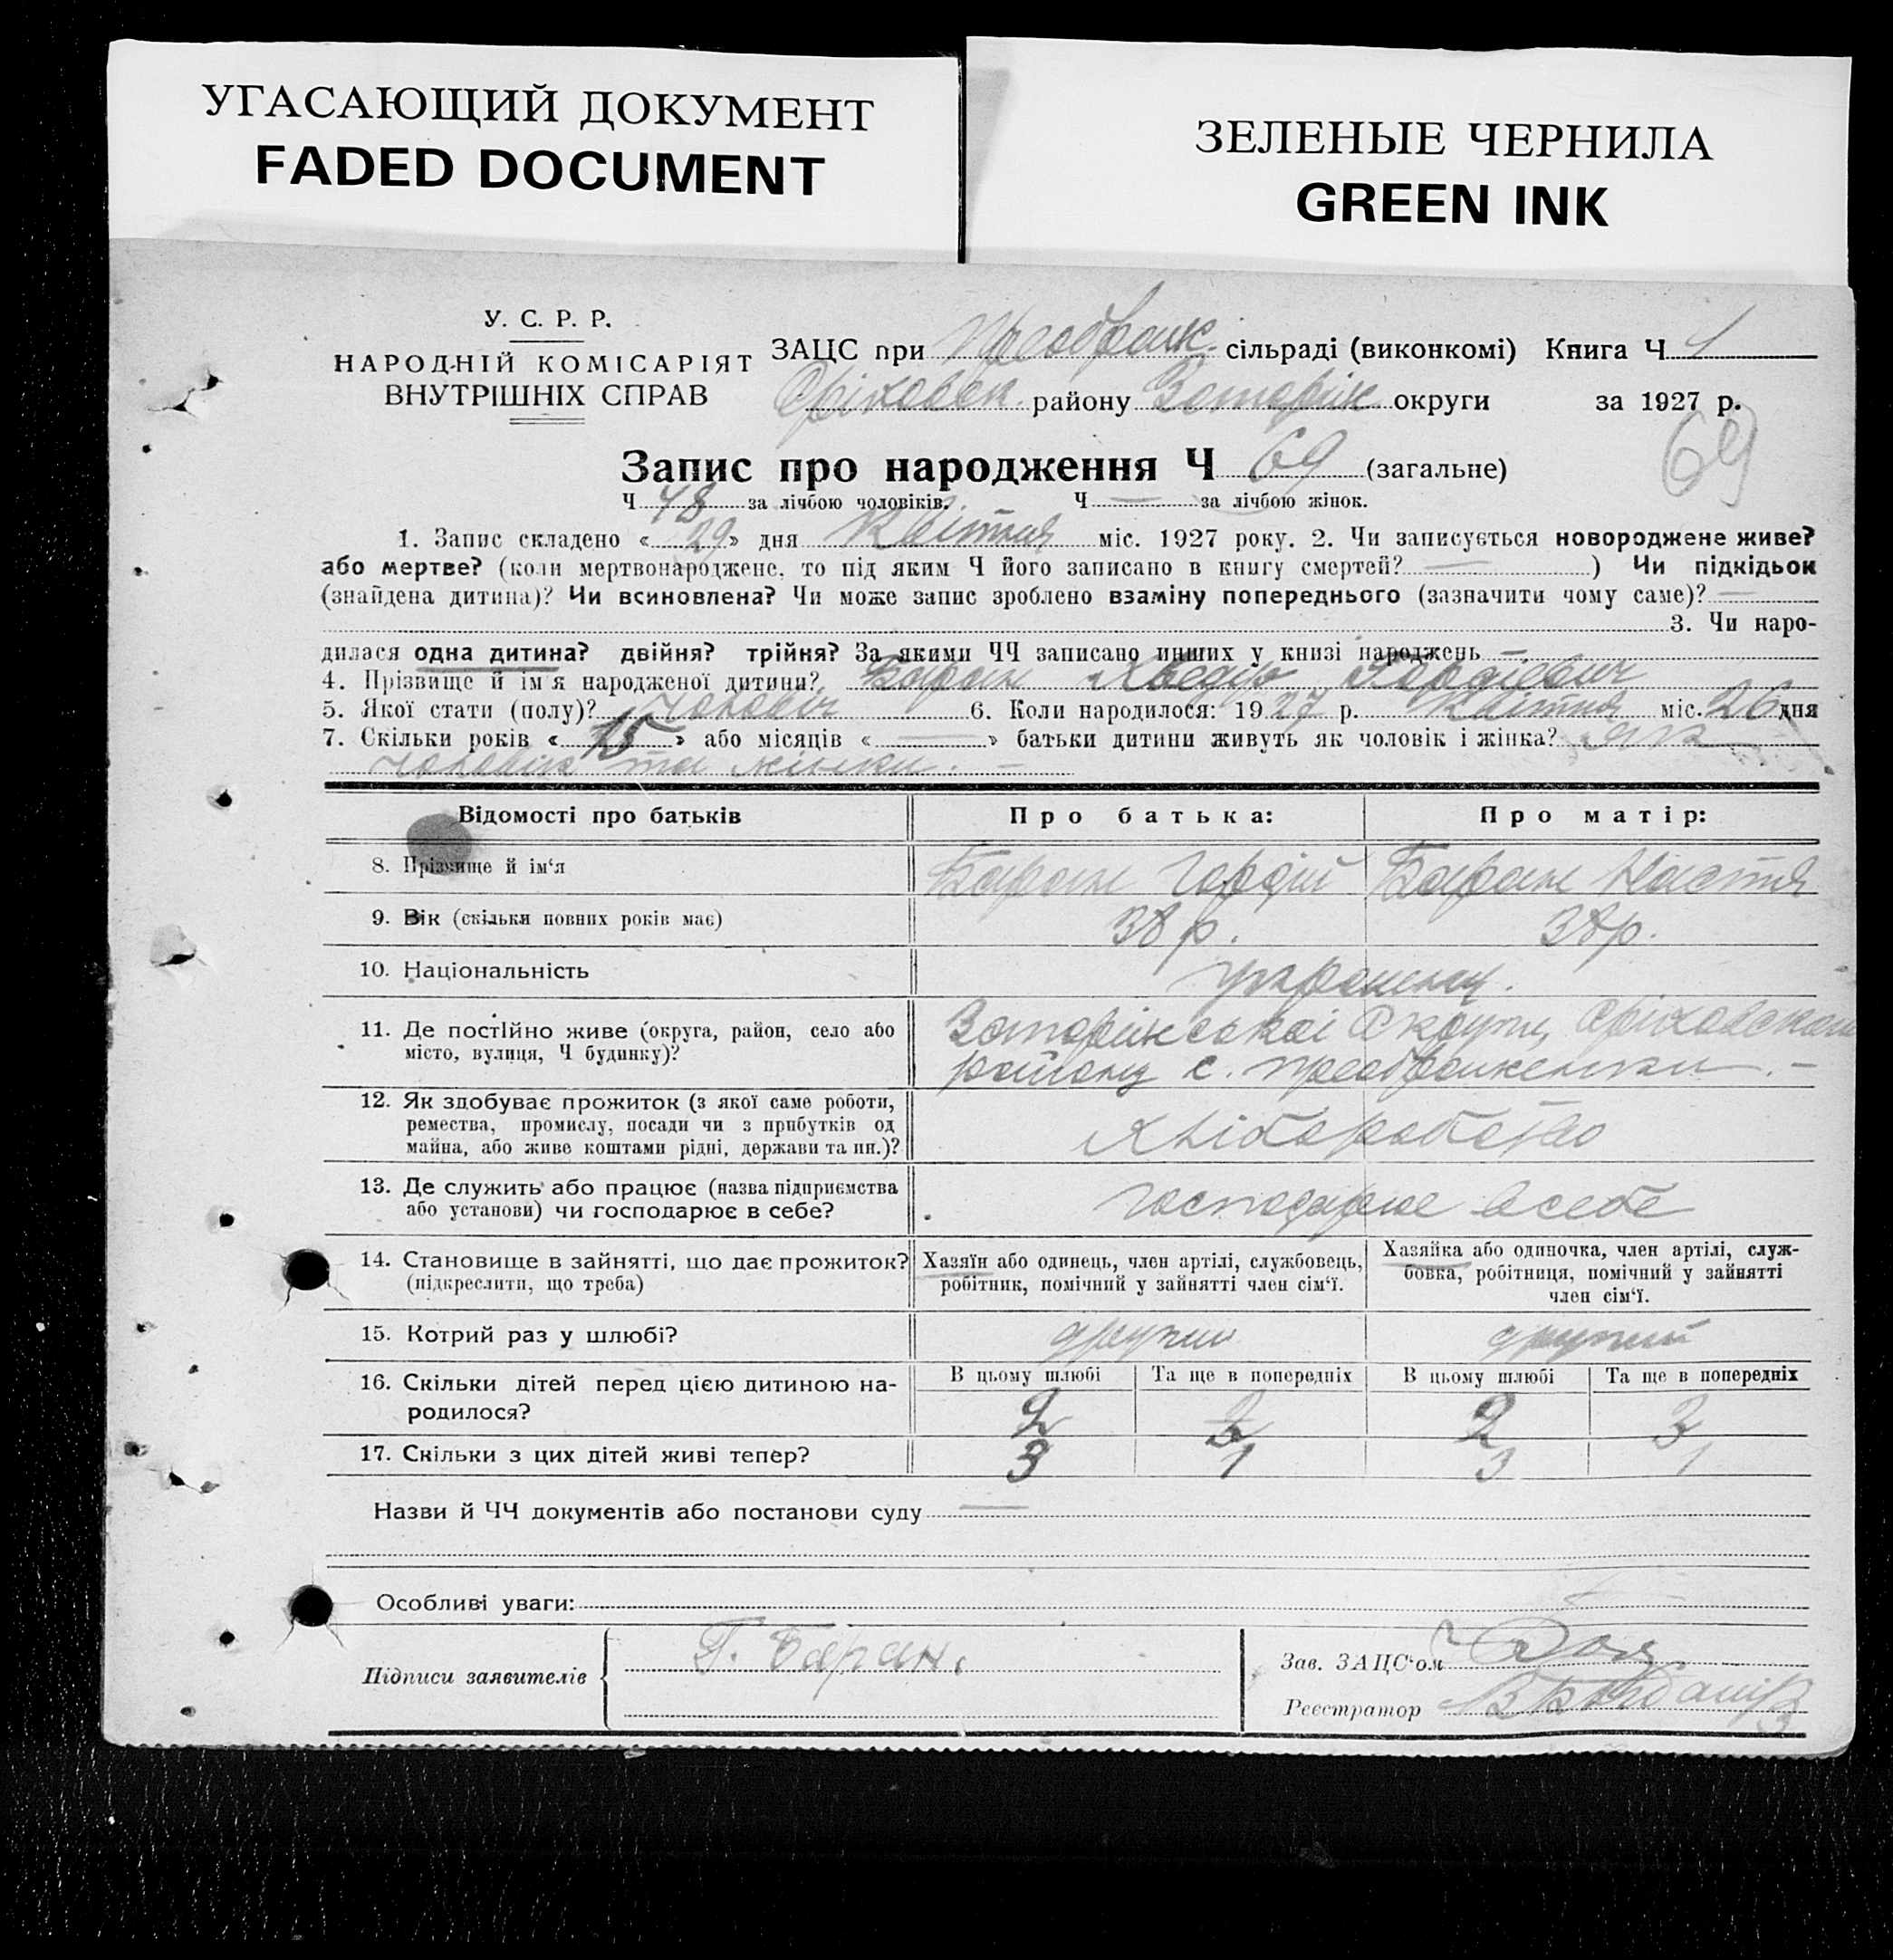 УГАСАЮЩИЙ ДОКУМЕНТ
FADED DOCUMENT
ЗЕЛЕНЫЕ ЧЕРНИЛА
GREEN INK
У. С. Р. Р.
НАРОДНІЙ КОМІСАРІЯТ
ВНУТРІШНІХ СПРАВ
ЗАЦС при Преображ. сільраді (виконкомі) Книга Ч 1
Оріховск. району Запоріж округи за 1927 р.
69
Запис про народження Ч 69 (загальне)
Ч 48 за лічбою чоловіків. Ч — за лічбою жінок.
1. Запис складено «29» дня Квітня міс. 1927 року. 2. Чи записується новороджене живе?
або мертве? (коли мертвонароджене, то під яким Ч його записано в книгу смертей? — ) Чи підкідьок
(знайдена дитина)? Чи всиновлена? Чи може запис зроблено взаміну попереднього (зазначити чому саме)? —
3. Чи наро-
дилася одна дитина? двійня? трійня? За якими ЧЧ записано инших у книзі народжень —
4. Прізвище й ім'я народженої дитини? Баран Хведір Гордієвич
5. Якої стати (полу)? чоловіч 6. Коли народилося: 1927 р. Квітня міс. 26 дня
7. Скільки років «15» або місяців « — » батьки дитини живуть як чоловік і жінка? як
чоловік та жінка. —
Відомості про батьків Про батька: Про матір:
8. Прізвище й ім'я Баран Гордій Баран Настя
9. Вік (скільки повних років має) 38 р. 38 р.
10. Національність українці.
11. Де постійно живе (округа, район, село або
місто, вулиця, Ч будинку)?
Запоріжської Округи, Оріховского
району с. Преображенки. —
12. Як здобуває прожиток (з якої саме роботи,
ремества, промислу, посади чи з прибутків од
майна, або живе коштами рідні, держави та ин.)?
Хліборобство
13. Де служить або працює (назва підприємства
або установи) чи господарює в себе?
господарює в себе
14. Становище в зайнятті, що дає прожиток?
(підкреслити, що треба)
Хазяїн або одинець, член артілі, службовець,
робітник, помічний у зайнятті член сім'ї.
Хазяйка або одиночка, член артілі, служ-
бовка, робітниця, помічний у зайнятті
член сім'ї.
15. Котрий раз у шлюбі? другий другий
16. Скільки дітей перед цією дитиною на-
родилося?
В цьому шлюбі Та ще в попередніх В цьому шлюбі Та ще в попередніх
2 3 2 3
17. Скільки з цих дітей живі тепер? 3 1 3 1
Назви й ЧЧ документів або постанови суду —
Особливі уваги:
Підписи заявителів Г. Баран.
Зав. ЗАЦС'ом
Реєстратор